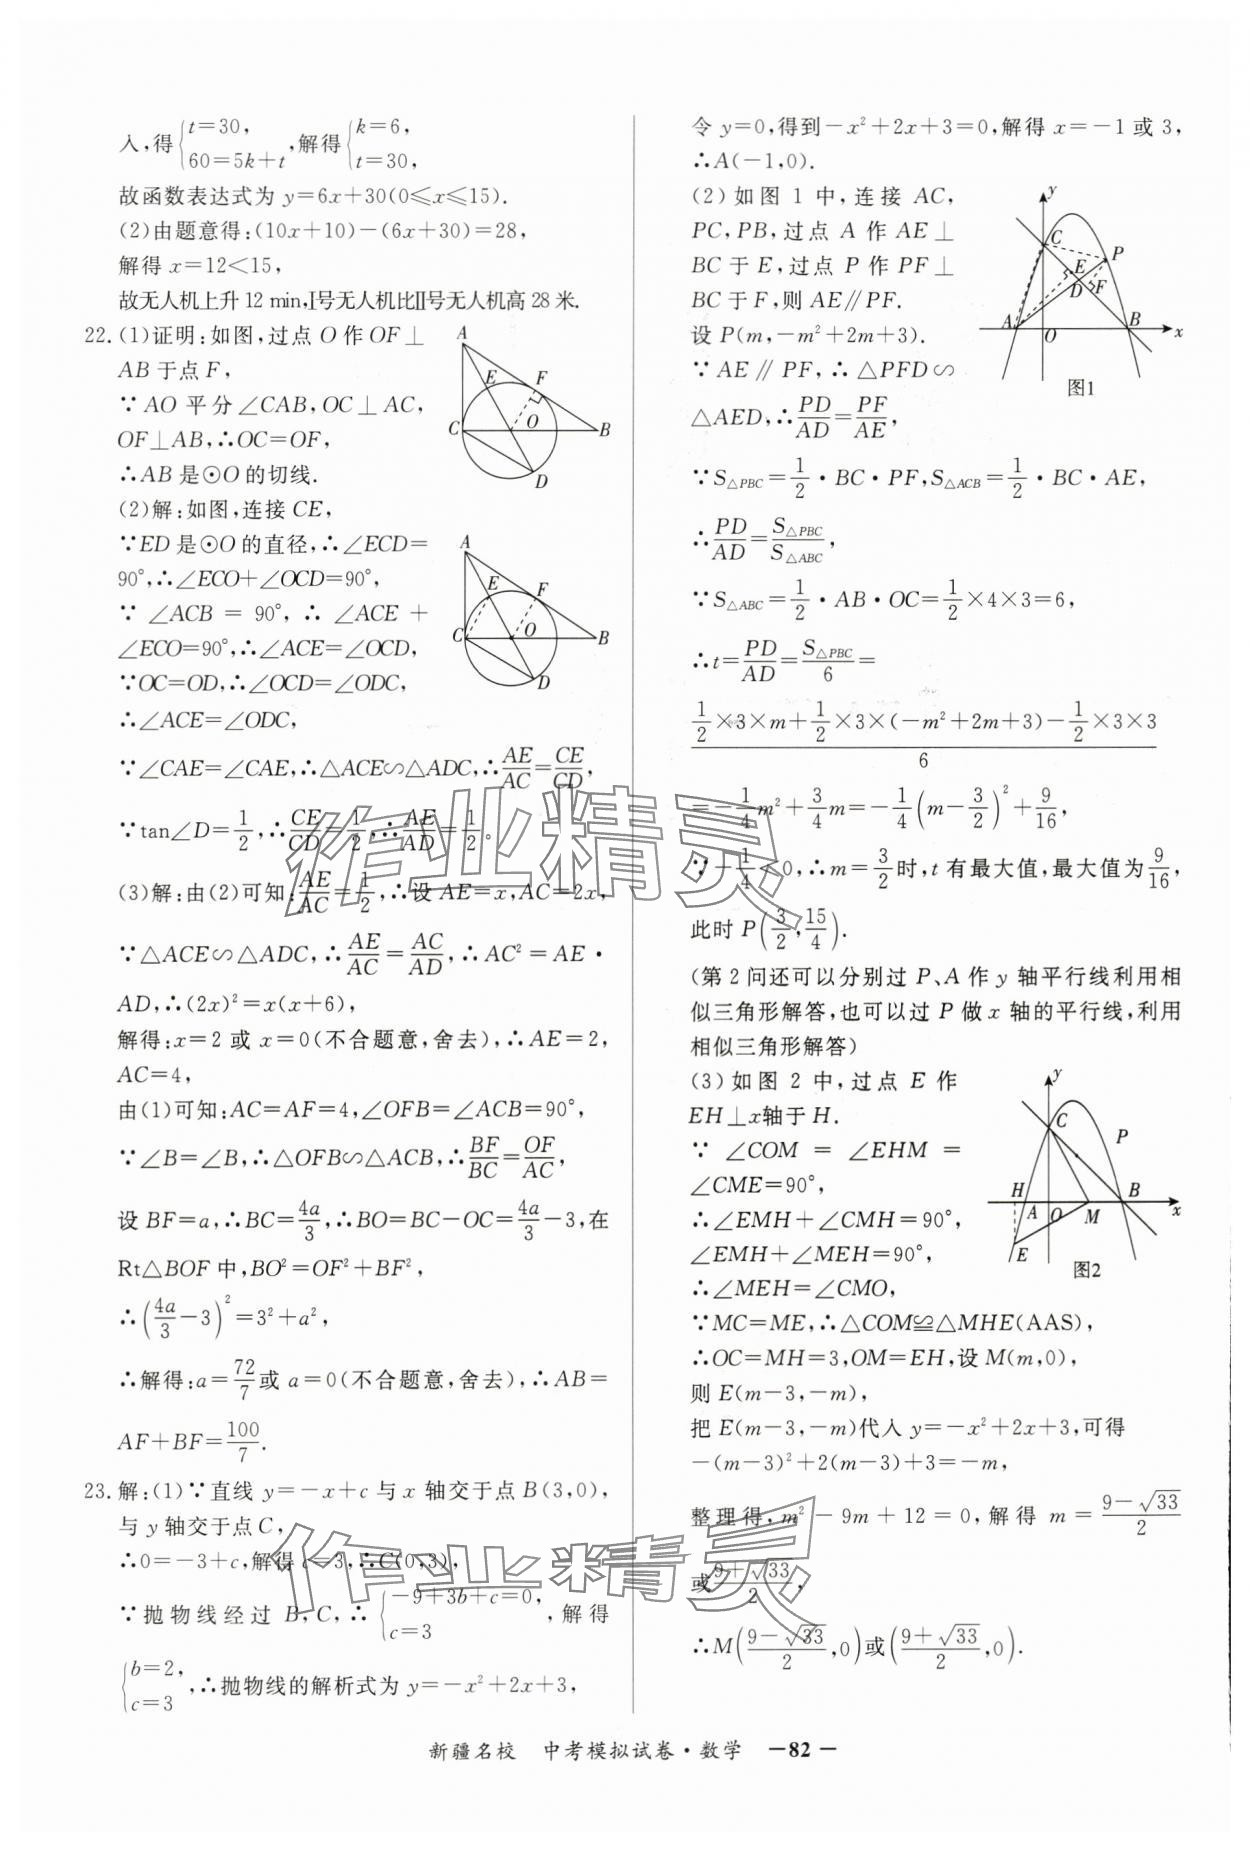 入,得{t=30, 60=5k+t ,解得{k=6, t=30,
故函数表达式为 y=6x+30(0≤x≤15).
(2)由题意得:(10x+10)-(6x+30)=28,
解得 x=12<15,
故无人机上升 12 min,Ⅰ号无人机比Ⅱ号无人机高 28 米.
22.(1)证明:如图,过点 O 作 OF⊥
AB 于点 F,
∵ AO 平分∠CAB,OC⊥AC,
OF⊥AB,∴OC=OF,
∴AB 是⊙O 的切线.
A
E
F
C
O
B
D
(2)解:如图,连接 CE,
∵ED 是⊙O 的直径,∴∠ECD=
90°,∴∠ECO+∠OCD=90°,
∵ ∠ACB = 90°, ∴ ∠ACE +
∠ECO=90°,∴∠ACE=∠OCD,
∵OC=OD,∴∠OCD=∠ODC,
∴∠ACE=∠ODC,
A
E
F
C
O
B
D
∵∠CAE=∠CAE,∴△ACE∽△ADC,∴AE/AC=CE/CD,
∵tan∠D=1/2,∴CE/CD=1/2,∴AE/AD=1/2。
(3)解:由(2)可知:AE/AC=1/2,∴设 AE=x,AC=2x,
∵△ACE∽△ADC,∴AE/AC=AC/AD,∴AC²=AE·
AD,∴(2x)²=x(x+6),
解得:x=2 或 x=0(不合题意,舍去),∴AE=2,
AC=4,
由(1)可知:AC=AF=4,∠OFB=∠ACB=90°,
∵∠B=∠B,∴△OFB∽△ACB,∴BF/BC=OF/AC,
设 BF=a,∴BC=4a/3,∴BO=BC-OC=4a/3-3,在
Rt△BOF 中,BO²=OF²+BF²,
∴(4a/3-3)²=3²+a²,
∴解得:a=72/7或 a=0(不合题意,舍去),∴AB=
AF+BF=100/7.
23.解:(1)∵直线 y=-x+c 与 x 轴交于点 B(3,0),
与 y 轴交于点 C,
∴0=-3+c,解得 c=3,∴C(0,3),
∵抛物线经过 B,C,∴{-9+3b+c=0, c=3 ,解得
{b=2, c=3 ,∴抛物线的解析式为 y=-x²+2x+3,
令 y=0,得到-x²+2x+3=0,解得 x=-1 或 3,
∴A(-1,0).
(2)如图 1 中,连接 AC,
PC,PB,过点 A 作 AE⊥
BC 于 E,过点 P 作 PF⊥
BC 于 F,则 AE∥PF.
设 P(m,-m²+2m+3).
∵ AE∥PF,∴△PFD∽
△AED,∴PD/AD=PF/AE,
y
C
P
E
D
F
A
O
B
x
图1
∵S△PBC=1/2·BC·PF,S△ACB=1/2·BC·AE,
∴PD/AD=S△PBC/S△ABC,
∵S△ABC=1/2·AB·OC=1/2×4×3=6,
∴t=PD/AD=S△PBC/6=
(1/2×3×m+1/2×3×(-m²+2m+3)-1/2×3×3)/6
=-1/4m²+3/4m=-1/4(m-3/2)²+9/16,
∵-1/4<0,∴m=3/2时,t 有最大值,最大值为9/16,
此时 P(3/2,15/4).
(第 2 问还可以分别过 P、A 作 y 轴平行线利用相
似三角形解答,也可以过 P 做 x 轴的平行线,利用
相似三角形解答)
(3)如图 2 中,过点 E 作
EH⊥x轴于 H.
∵ ∠COM = ∠EHM =
∠CME=90°,
∴∠EMH+∠CMH=90°,
∠EMH+∠MEH=90°,
∴∠MEH=∠CMO,
y
C
P
H
A
O
M
B
x
E
图2
∵MC=ME,∴△COM≌△MHE(AAS),
∴OC=MH=3,OM=EH,设 M(m,0),
则 E(m-3,-m),
把 E(m-3,-m)代入 y=-x²+2x+3,可得
-(m-3)²+2(m-3)+3=-m,
整理得,m²-9m+12=0,解得 m=(9-√33)/2
或(9+√33)/2,
∴M((9-√33)/2,0)或((9+√33)/2,0).
作业精灵
作业精灵
新疆名校 中考模拟试卷·数学 —82—